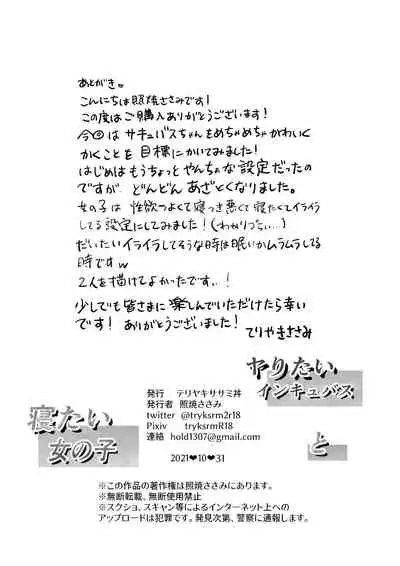 あとがき
こんにちは照焼ささみです!
この度はご購入ありがとうございます!
今回はサキュバスちゃんをめちゃめちゃかわいく
かくことを目標にかいてみました!
はじめはもうちょっとやんちゃな設定だったの
ですが どんどんあざとくなりました。
女の子は性欲つよくて寝つき悪くて寝たくてイライラ
してる設定にしてみました!(わかりづらい…)
だいたいイライラしてそうな時は眠いかムラムラしてる
時ですw
2人を描けてよかったです…!
少しでも皆さまに楽しんでいただけたら幸い
です! ありがとうございました!
てりやきささみ
ヤりたい
インキュバス
と
寝たい
女の子
発行 テリヤキササミ丼
発行者 照焼ささみ
twitter @tryksrm2r18
Pixiv tryksrmR18
連絡 hold1307@gmail.com
2021❤10❤31
※この作品の著作権は照焼ささみにあります。
※無断転載、無断使用禁止
※スクショ、スキャン等によるインターネット上への
アップロードは犯罪です。発見次第、警察に通報します。